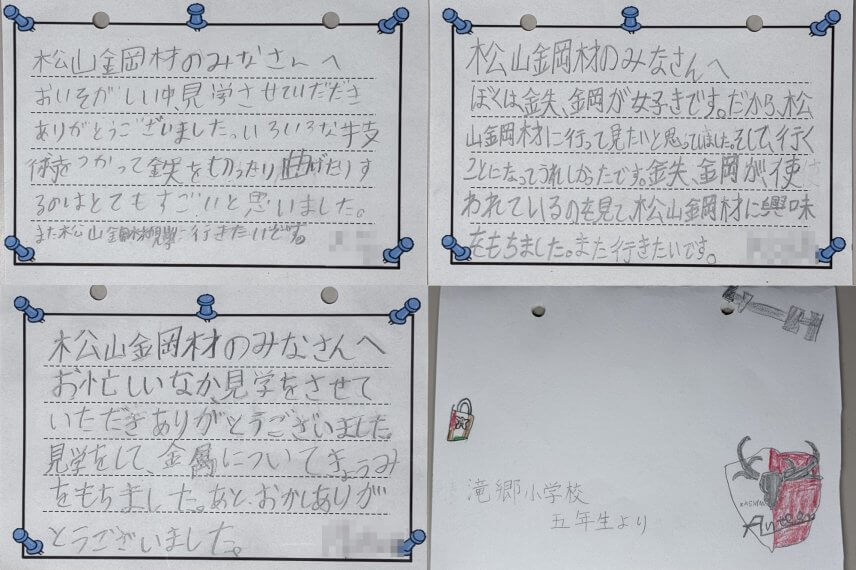 松山金岡材のみなさんへ
おいそがしい中、見学させていだだき
ありがとうございました。いろいろな技
術をつかって鉄を切ったり曲げたりす
るのはとてもすごいと思いました。
また松山金岡材見学に行きたいです。
松山金岡材のみなさんへ
ぼくは、鉄、金岡が好きです。だから、松
山金岡材に行って見たいと思っていました。そして、行く
ことになってうれしかったです。鉄、金岡が、使
われているのを見て、松山金岡材に興味
をもちました。また行きたいです。
松山金岡材のみなさんへ
お忙しいなか、見学をさせて
いただきありがとうございました。
見学をして、金属についてきょうみ
をもちました。あと、おかしありが
とうございました。
滝郷小学校
五年生より
Antlers